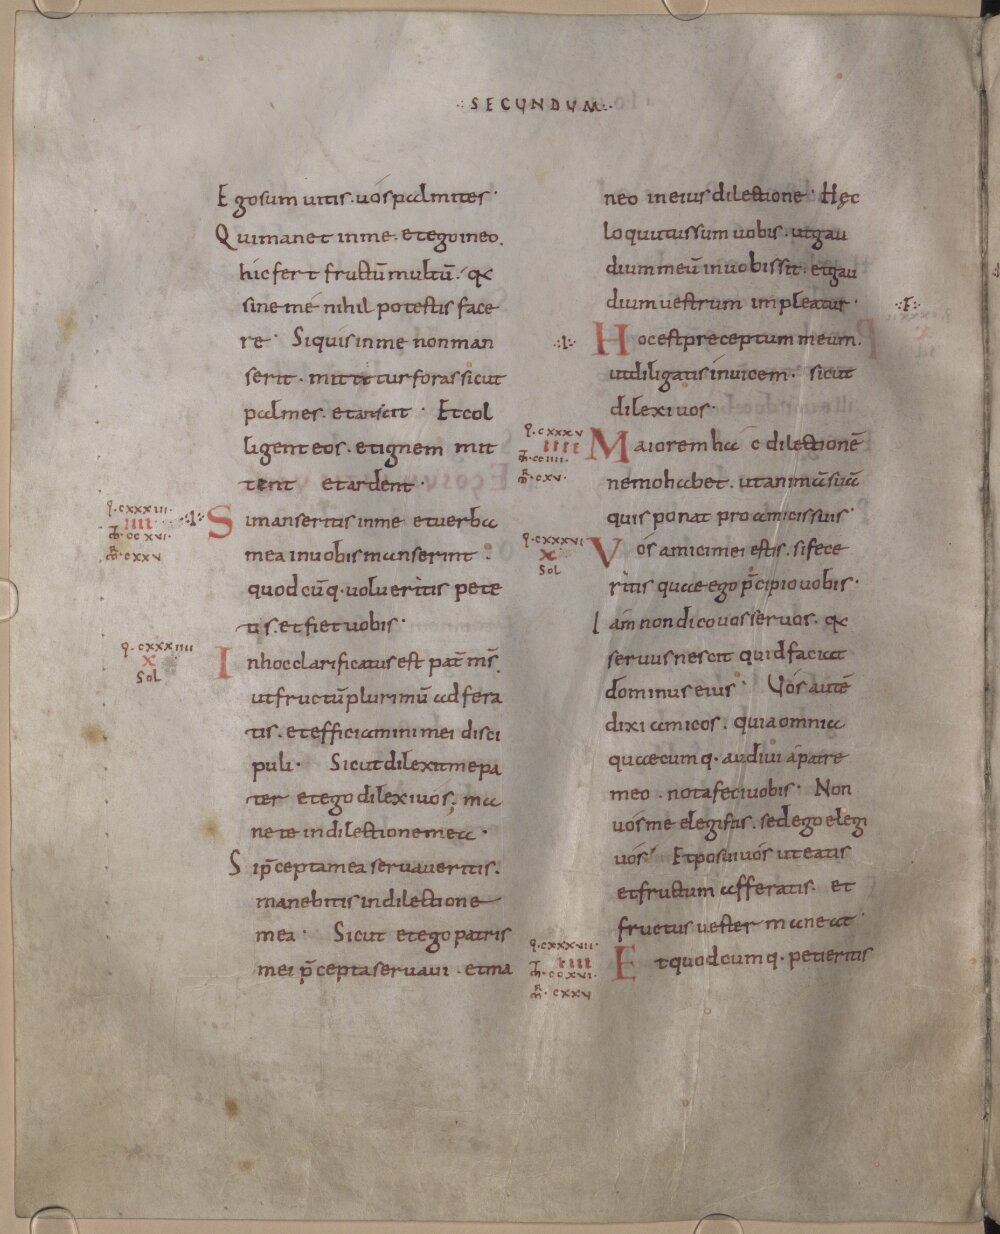 ·:SECUNDUM:·
Ego sum uitis. uós palmites·
Qui manet in me. et ego in eo.
hic fert fructū multū. qa
sine me nihil potestis face
re· Si quis in me non man
serit. mittetur foras sicut
palmes. et arescit· Et col
ligent eos. et ignem mit
tent et ardent·
q. cxxxiii.
IIII
m̄. ccxvi.
m̄r. cxxv
·:I:·
Si manseritis in me et uerba
mea in uobis manserint:
quodcūq. uolueritis pete
tis. et fiet uobis·
q. cxxxiiii
X
Sol
In hoc clarificatus est pat̄ m̄s.
ut fructū plurimū adfera
tis. et efficiamini mei disci
puli· Sicut dilexit me pa
ter et ego dilexi uós; ma
nete in dilectione mea·
Si p̄cepta mea seruaueritis.
manebitis in dilectione
mea· Sicut et ego patris
mei p̄cepta seruaui. et ma
neo in eius dilectione· Hęc
loquutus sum uobis. ut gau
dium meū in uobis sit. et gau
dium uestrum impleatur·
·:I:·
Hoc est preceptum meum.
ut diligatis inuicem. sicut
dilexi uos·
q. cxxxv
IIII
m̄. cciiii.
m̄r. cxv.
Maiorem hac dilectionē
nemo habet. ut animā suā
quis ponat pro amicis suis·
q. cxxxvi
X
Sol
Vós amici mei estis. si fece
ritis quae ego p̄cipio uobis·
Iam non dico uos seruos. qa
seruus nescit quid faciat
dominus eius· Vós autē
dixi amicos. quia omnia
quaecumq. audiui a patre
meo. nota feci uobis· Non
uos me elegistis. sed ego elegi
uós· Et posui uós ut eatis
et fructum afferatis. et
fructus uester maneat·
q. cxxxvii.
IIII
m̄. ccxvi.
m̄r. cxxv
Et quodcumq. petieritis